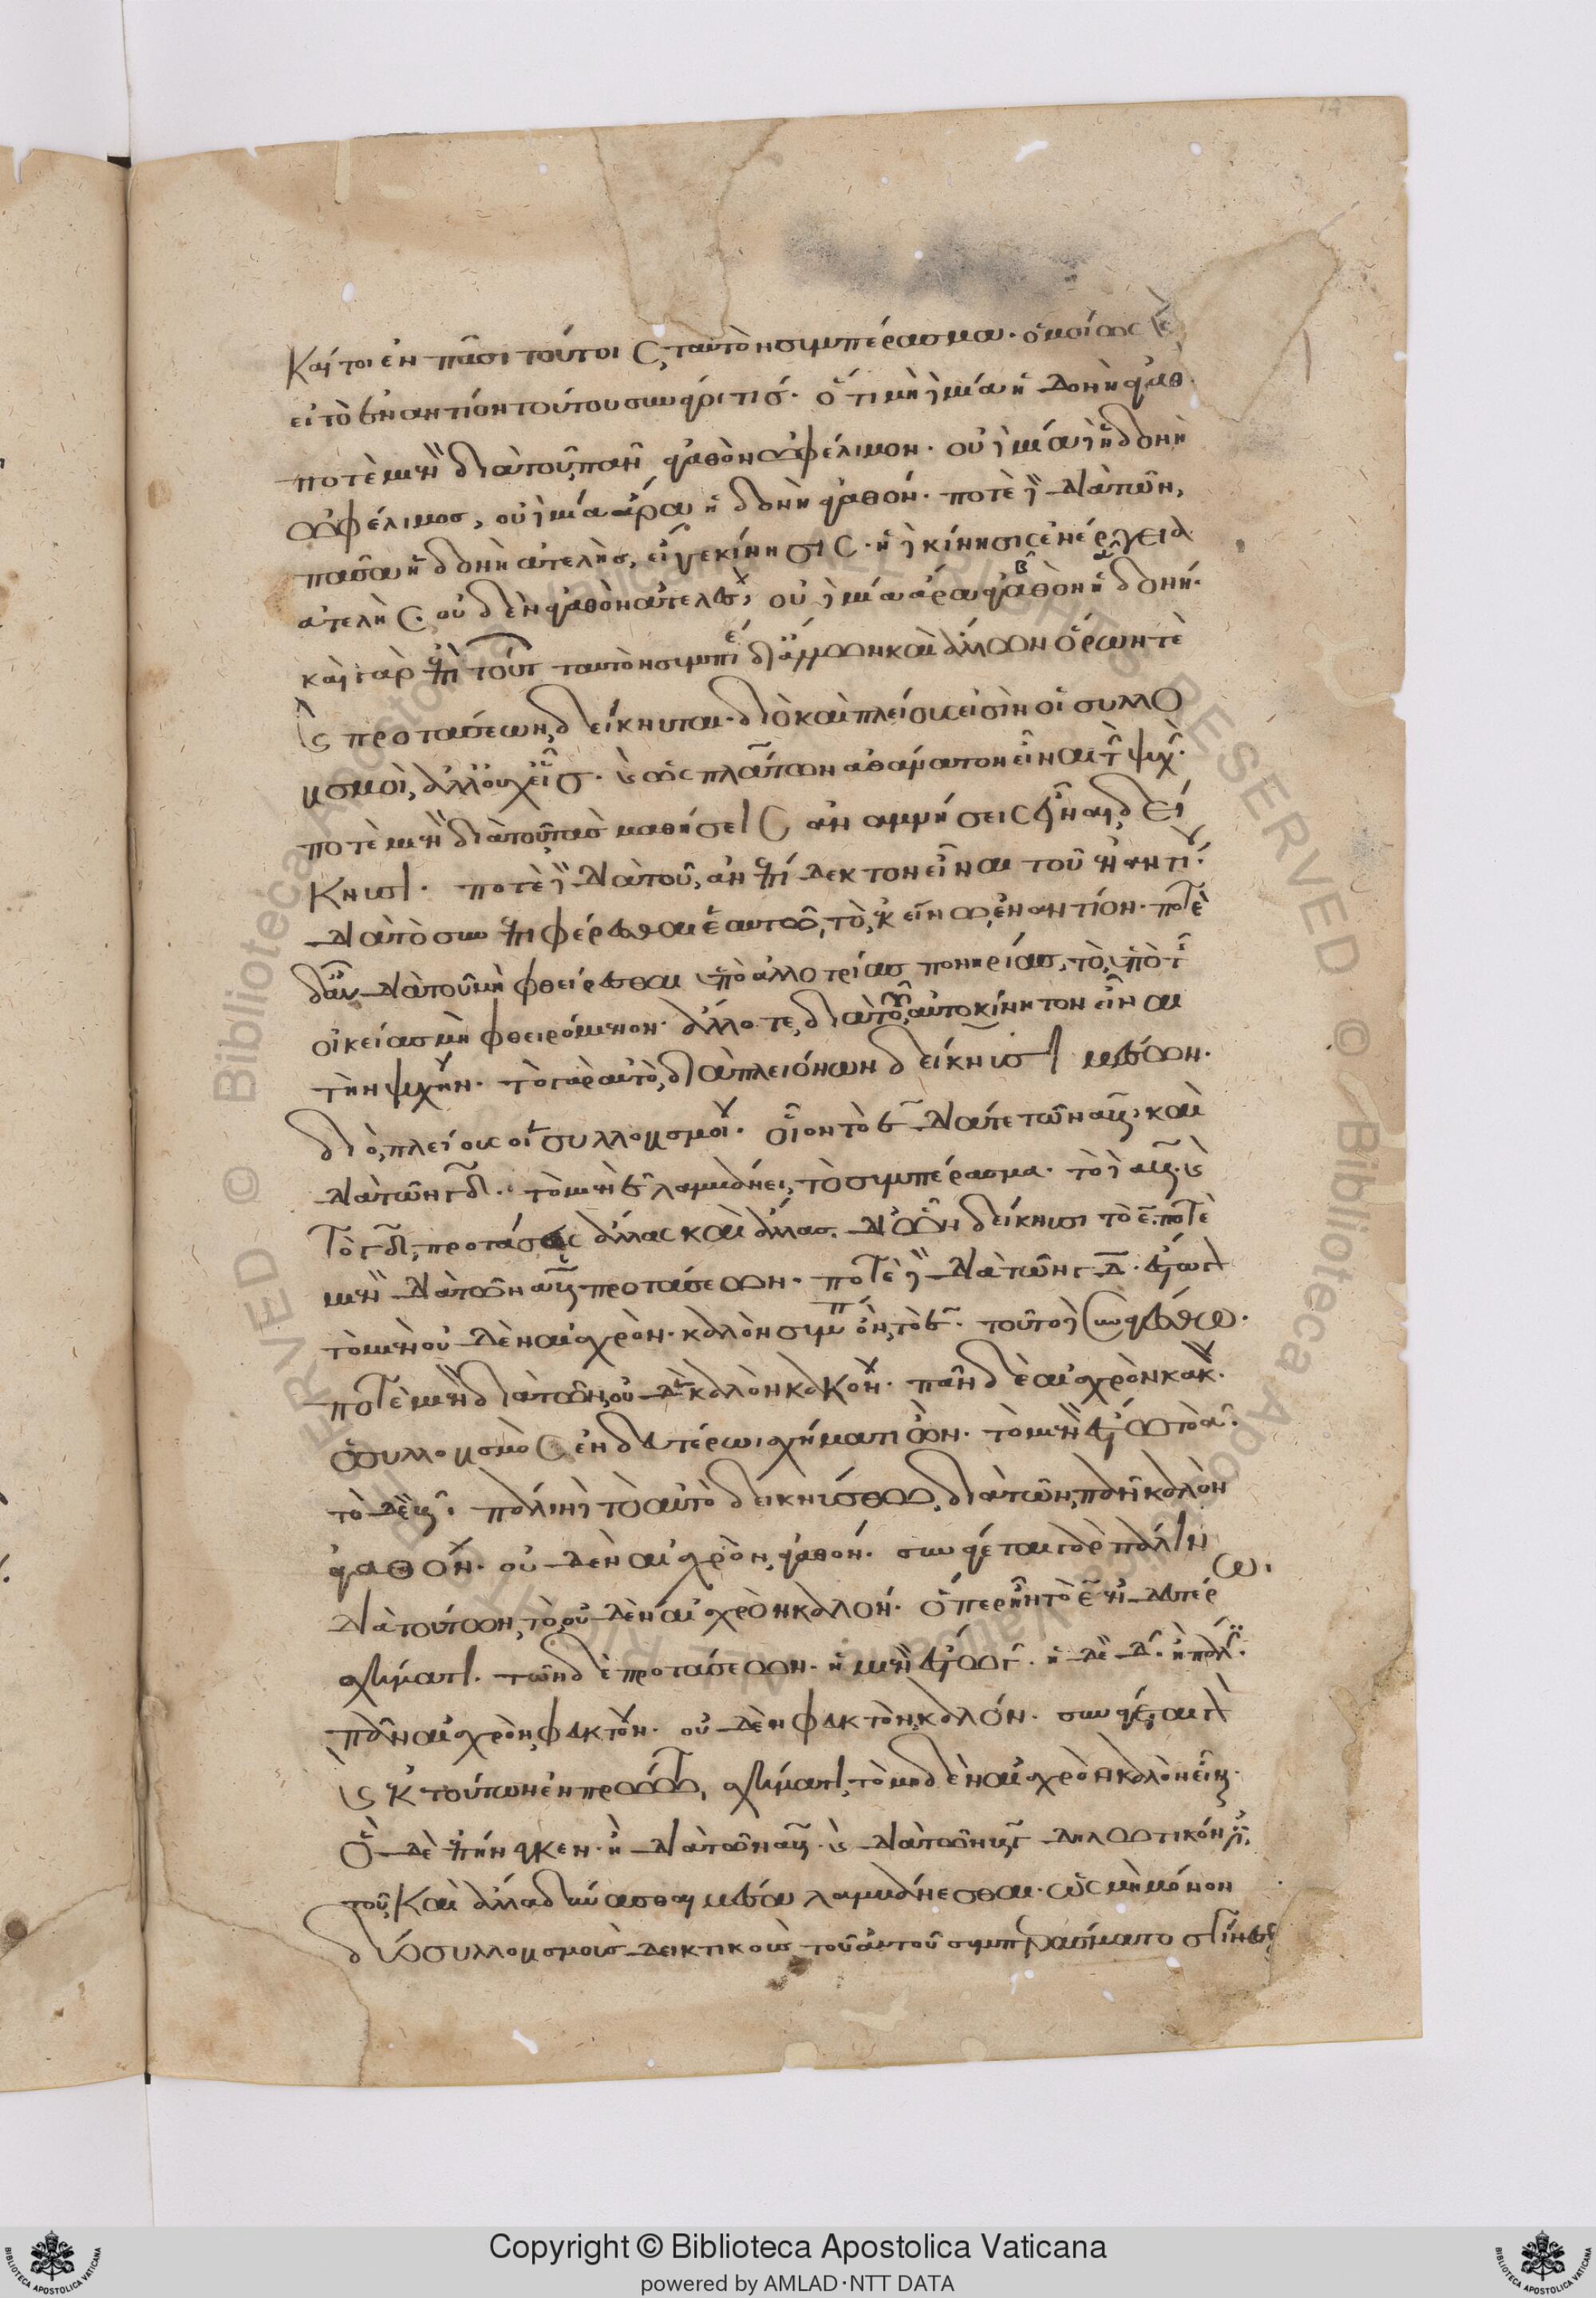 καίτοι ἐν πᾶσι τούτοις ταυτὸν συμπέρασμα· ὁμοίως
εἰ τὸ ἐναντίον τούτου συνάγει τις· ὅτι μηδεμία ἡδονὴ ἀγαθ
ποτὲ μὲν διὰ τοῦ πᾶν ἀγαθὸν ὠφέλιμον· οὐδεμία δὲ ἡδονὴ
ὠφέλιμος, οὐδεμία ἄρα ἡδονὴ ἀγαθόν· ποτὲ δὲ διὰ τῶν,
πᾶσα ἡδονὴ ἀτελὴς, εἴγε κίνησις· ἡ δὲ κίνησις ἐνέργεια
ἀτελής· οὐδὲν ἀγαθὸν ἀτελὲς, οὐδεμία ἄρα ἀγαθὸν ἡδονή·
καὶ γὰρ ἐπὶ τούτ ταυτὸν συμπέ δι' ἄλλων καὶ ἄλλων ὅρων τε
καὶ προτάσεων δείκνυται· διὸ καὶ πλείους εἰσὶν οἱ συλλο
γισμοὶ, ἀλλ' οὐχ εἷς· καὶ ὡς πλάτων ἀθάνατον εἶναι τὴν ψυχὴν
ποτὲ μὲν διὰ τοῦ τὰς μαθήσεις ἀναμνήσεις εἶναι δεί
κνυσι· ποτὲ δὲ διὰ τοῦ, ἀνεπίδεκτον εἶναι τοῦ ἐναντίου
διὰ τὸ συνεπιφέρεσθαι ἑαυτῶ, τὸ ἐκείνω ἐναντίον· ποτὲ
δ' αὖ διὰ τοῦ μὴ φθείρεσθαι ὑπὸ ἀλλοτρίας πονηρίας, τὸ ὑπὸ τῆς
οἰκείας μὴ φθειρόμενον· ἄλλοτε, διὰ τοῦ αὐτοκίνητον εἶναι
τὴν ψυχήν· τὸ γὰρ αὐτὸ, διὰ πλειόνων δείκνυσι μέσων·
διὸ, πλείους οἱ συλλογισμοί· οἷον τὸ ε διά τε τῶν αβ, καὶ
διὰ τῶν γδ· τὸ μὲν ε λαμβάνει, τὸ συμπέρασμα· τὸ δὲ αβ· καὶ
τὸ γδ, προτάσεις ἄλλας καὶ ἄλλας, δι' ὧν δείκνυσι τὸ ε· ποτὲ
μὲν διὰ τῶν αβ προτάσεων· ποτὲ δὲ διὰ τῶν γδ· ἔστω γὰρ
τὸ μὲν οὐδὲν αἰσχρὸν καλὸν συμπ ὂν, τὸ ε· τοῦτο δὲ συναγέσθω·
ποτὲ μὲν διὰ τῶν, οὐδὲν καλὸν κακόν· πᾶν δὲ αἰσχρὸν κακόν·
ὁ συλλογισμὸς ἐν δευτέρωι σχήματι ὤν· τὸ μὲν ἔστω τὸ α·
τὸ δὲ β· πάλιν δὲ τὸ αὐτὸ δεικνύσθω, διὰ τῶν, πᾶν καλὸν
ἀγαθόν· οὐδὲν αἰσχρὸν, ἀγαθόν· συνάγεται γὰρ πάλιν
διὰ τούτων, τὸ οὐδὲν αἰσχρὸν καλόν· ὅπερ ἦν τὸ ε ἐν δευτέρω
σχήματι· τῶν δὲ προτάσεων· ἡ μὲν ἔστω γ· ἡ δὲ δ· ἢ πάλιν
πᾶν αἰσχρὸν, φευκτόν· οὐδὲν φευκτὸν, καλόν· συνάγεται γὰρ
καὶ ἐκ τούτων ἐν πρώτω σχήματι, τὸ μηδὲν αἰσχρὸν καλὸν εἶναι·
ὃ δὲ ἐπήνεγκεν· ἢ διὰ τῶν αβ· καὶ διὰ τῶν βγ δηλωτικόν ἐστι
τοῦ, καὶ ἄλλα δύνασθαι μέσα λαμβάνεσθαι· ὡς μὴ μόνον
δύο συλλογισμοὺς δεικτικοὺς τοῦ αὐτοῦ συμπεράσματος γίνεσ